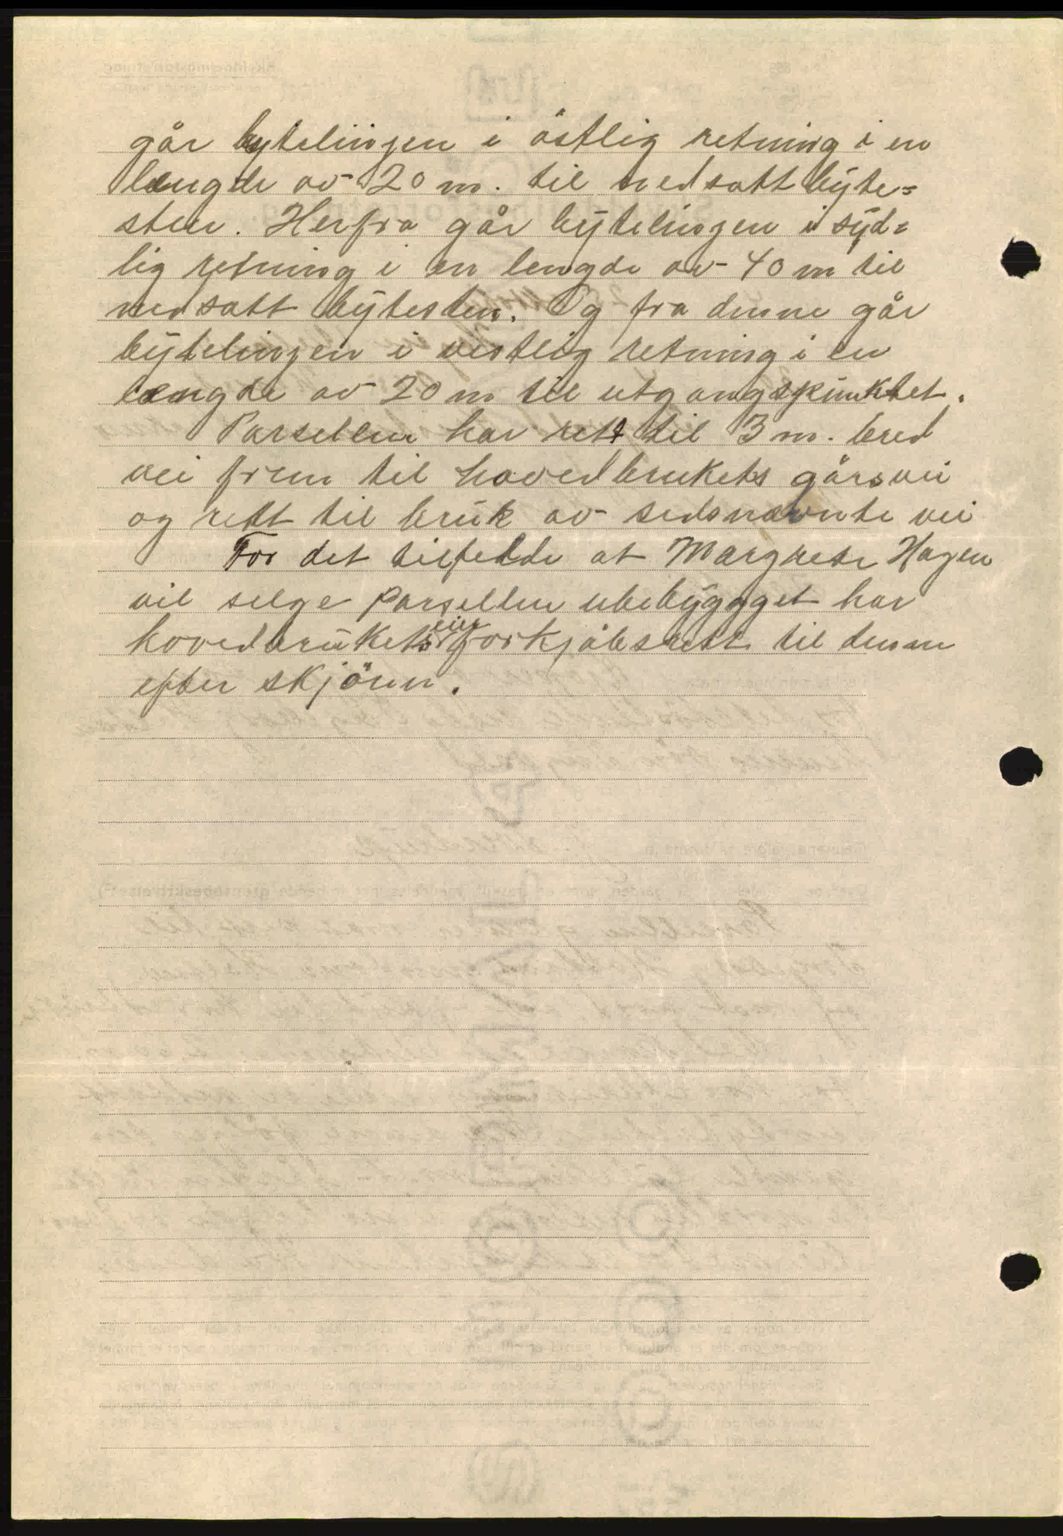 går bytelinjen i östlig retning i en
længde av 20 m. til nedsatt byte=
sten. Herfra går bytelinjen i syd=
lig retning i en lengde av 40 m til
nedsatt bytesten. Og fra denne går
bytelinjen i vestlig retning i en
længde av 20 m til utgangspunktet.
Parsellen har rett til 3 m. bred
vei frem til hovedbrukets gårsvei
og rett til bruk av sidsnævnte vei
For det tilfelde at Margrete Hagen
vil selge parsellen ubebygget har
hovedbrukets eier forkjöbsrett til denne
efter skjönn.